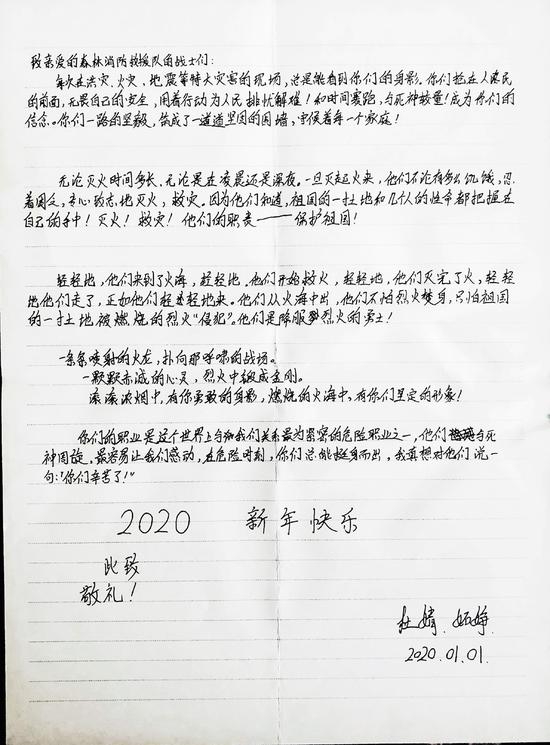 致亲爱的森林消防救援队的战士们：
每次在洪灾、火灾、地震等特大灾害的现场，总是能看到你们的身影。你们抢在人民
的前面，无畏自己的安全，用着行动为人民排忧解难！和时间赛跑，与死神较量！成为你们的
信念。你们一路的坚毅，筑成了一道道坚固的围墙，守候着每一个家庭！
无论灭火时间多长、无论是在凌晨还是深夜。一旦灭起火来，他们不论有多么饥饿，忍
着困乏，专心致志地灭火，救灾。因为他们知道，祖国的一扌土地和几亿人的性命都把握在
自己的手中！灭火！救灾！他们的职责——保护祖国！
轻轻地，他们来到了火海，轻轻地，他们开始救火，轻轻地，他们灭完了火，轻轻
地他们走了，正如他们轻轻地来。他们从火海中出，他们不怕烈火焚身，只怕祖国
的一扌土地被燃烧的烈火“侵犯”。他们是降服烈火的勇士！
一条条喷射的火龙，扑向那呼啸的战场。
一颗颗赤诚的心灵，烈火中锻成金刚。
滚滚浓烟中，有你勇敢的身影，燃烧的火海中，有你们坚定的形象！
你们的职业是这个世界上与和我们关系最为紧密的危险职业之一，他们与死
神周旋，最容易让我们感动，在危险时刻，你们总能挺身而出，我真想对他们说一
句：“你们辛苦了！”
2020 新年快乐
此致
敬礼！
杜婧 妬婙
2020.01.01.